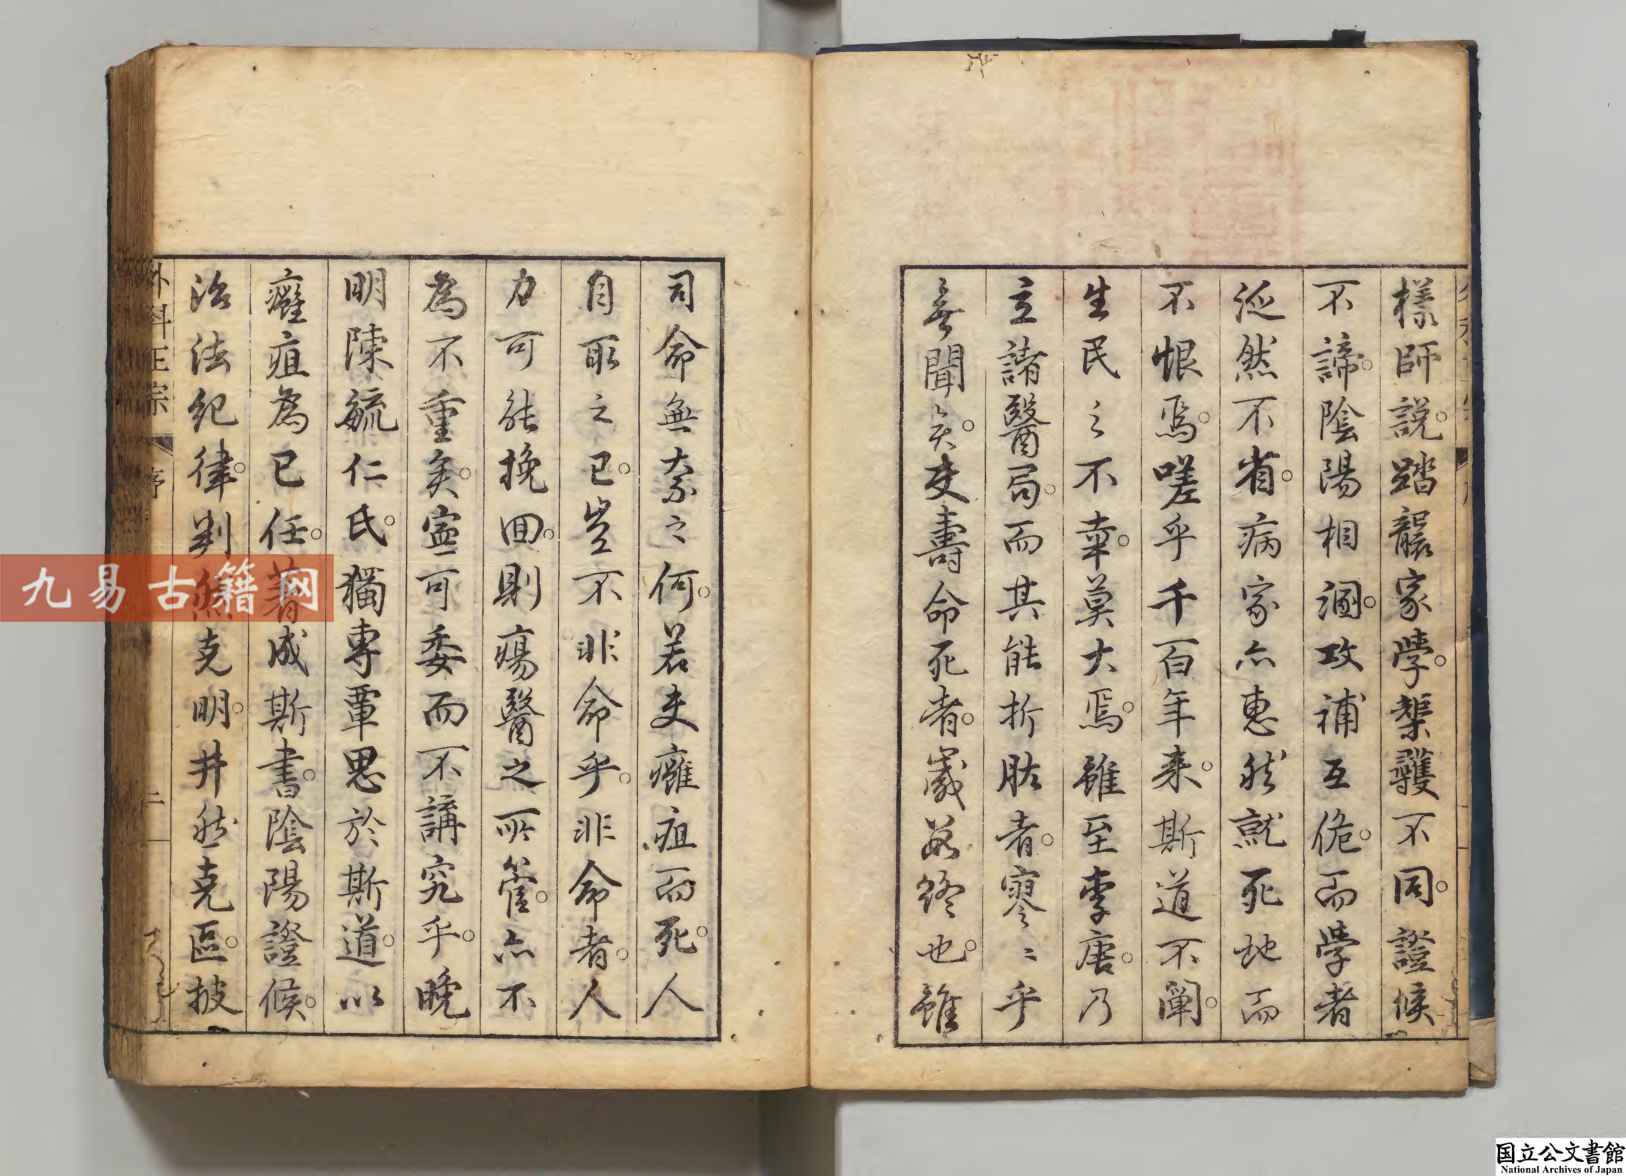 樣師說踏襲家學槼蠖不同證候
不諦陰陽相溷攻補互佹而學者
泛然不省病家亦惠然就死地而
不恨焉嗟乎千百年來斯道不闡
生民之不幸莫大焉雖至李唐乃
立諸醫局而其能折肱者寥〻乎
無聞矣夫壽命死者歲晷終也雖
司命無奈之何若夫癰疽而死人
自取之已豈不非命乎非命者人
力可能挽回則瘍醫之所管亦不
為不重矣寧可委而不講究乎晚
明陳毓仁氏獨專覃思於斯道以
癰疽為己任著成斯書陰陽證候
治法紀律判然克明井然克區披
外科正宗
序
二
九易古籍网
国立公文書館
National Archives of Japan